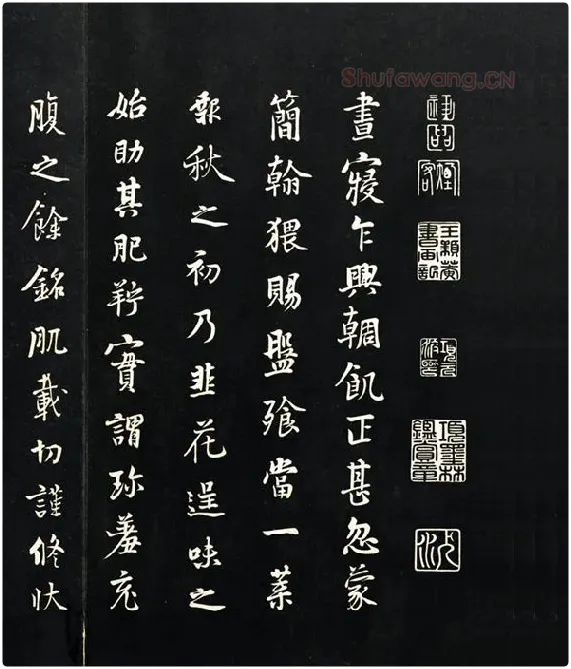 Shufawang.CN
項墨林鑑賞章
晝寢乍興輖飢正甚忽蒙
簡翰猥賜盤飧當一葉
報秋之初乃韭花逞味之
始助其肥羜實謂珍羞充
腹之餘銘肌載切謹修狀